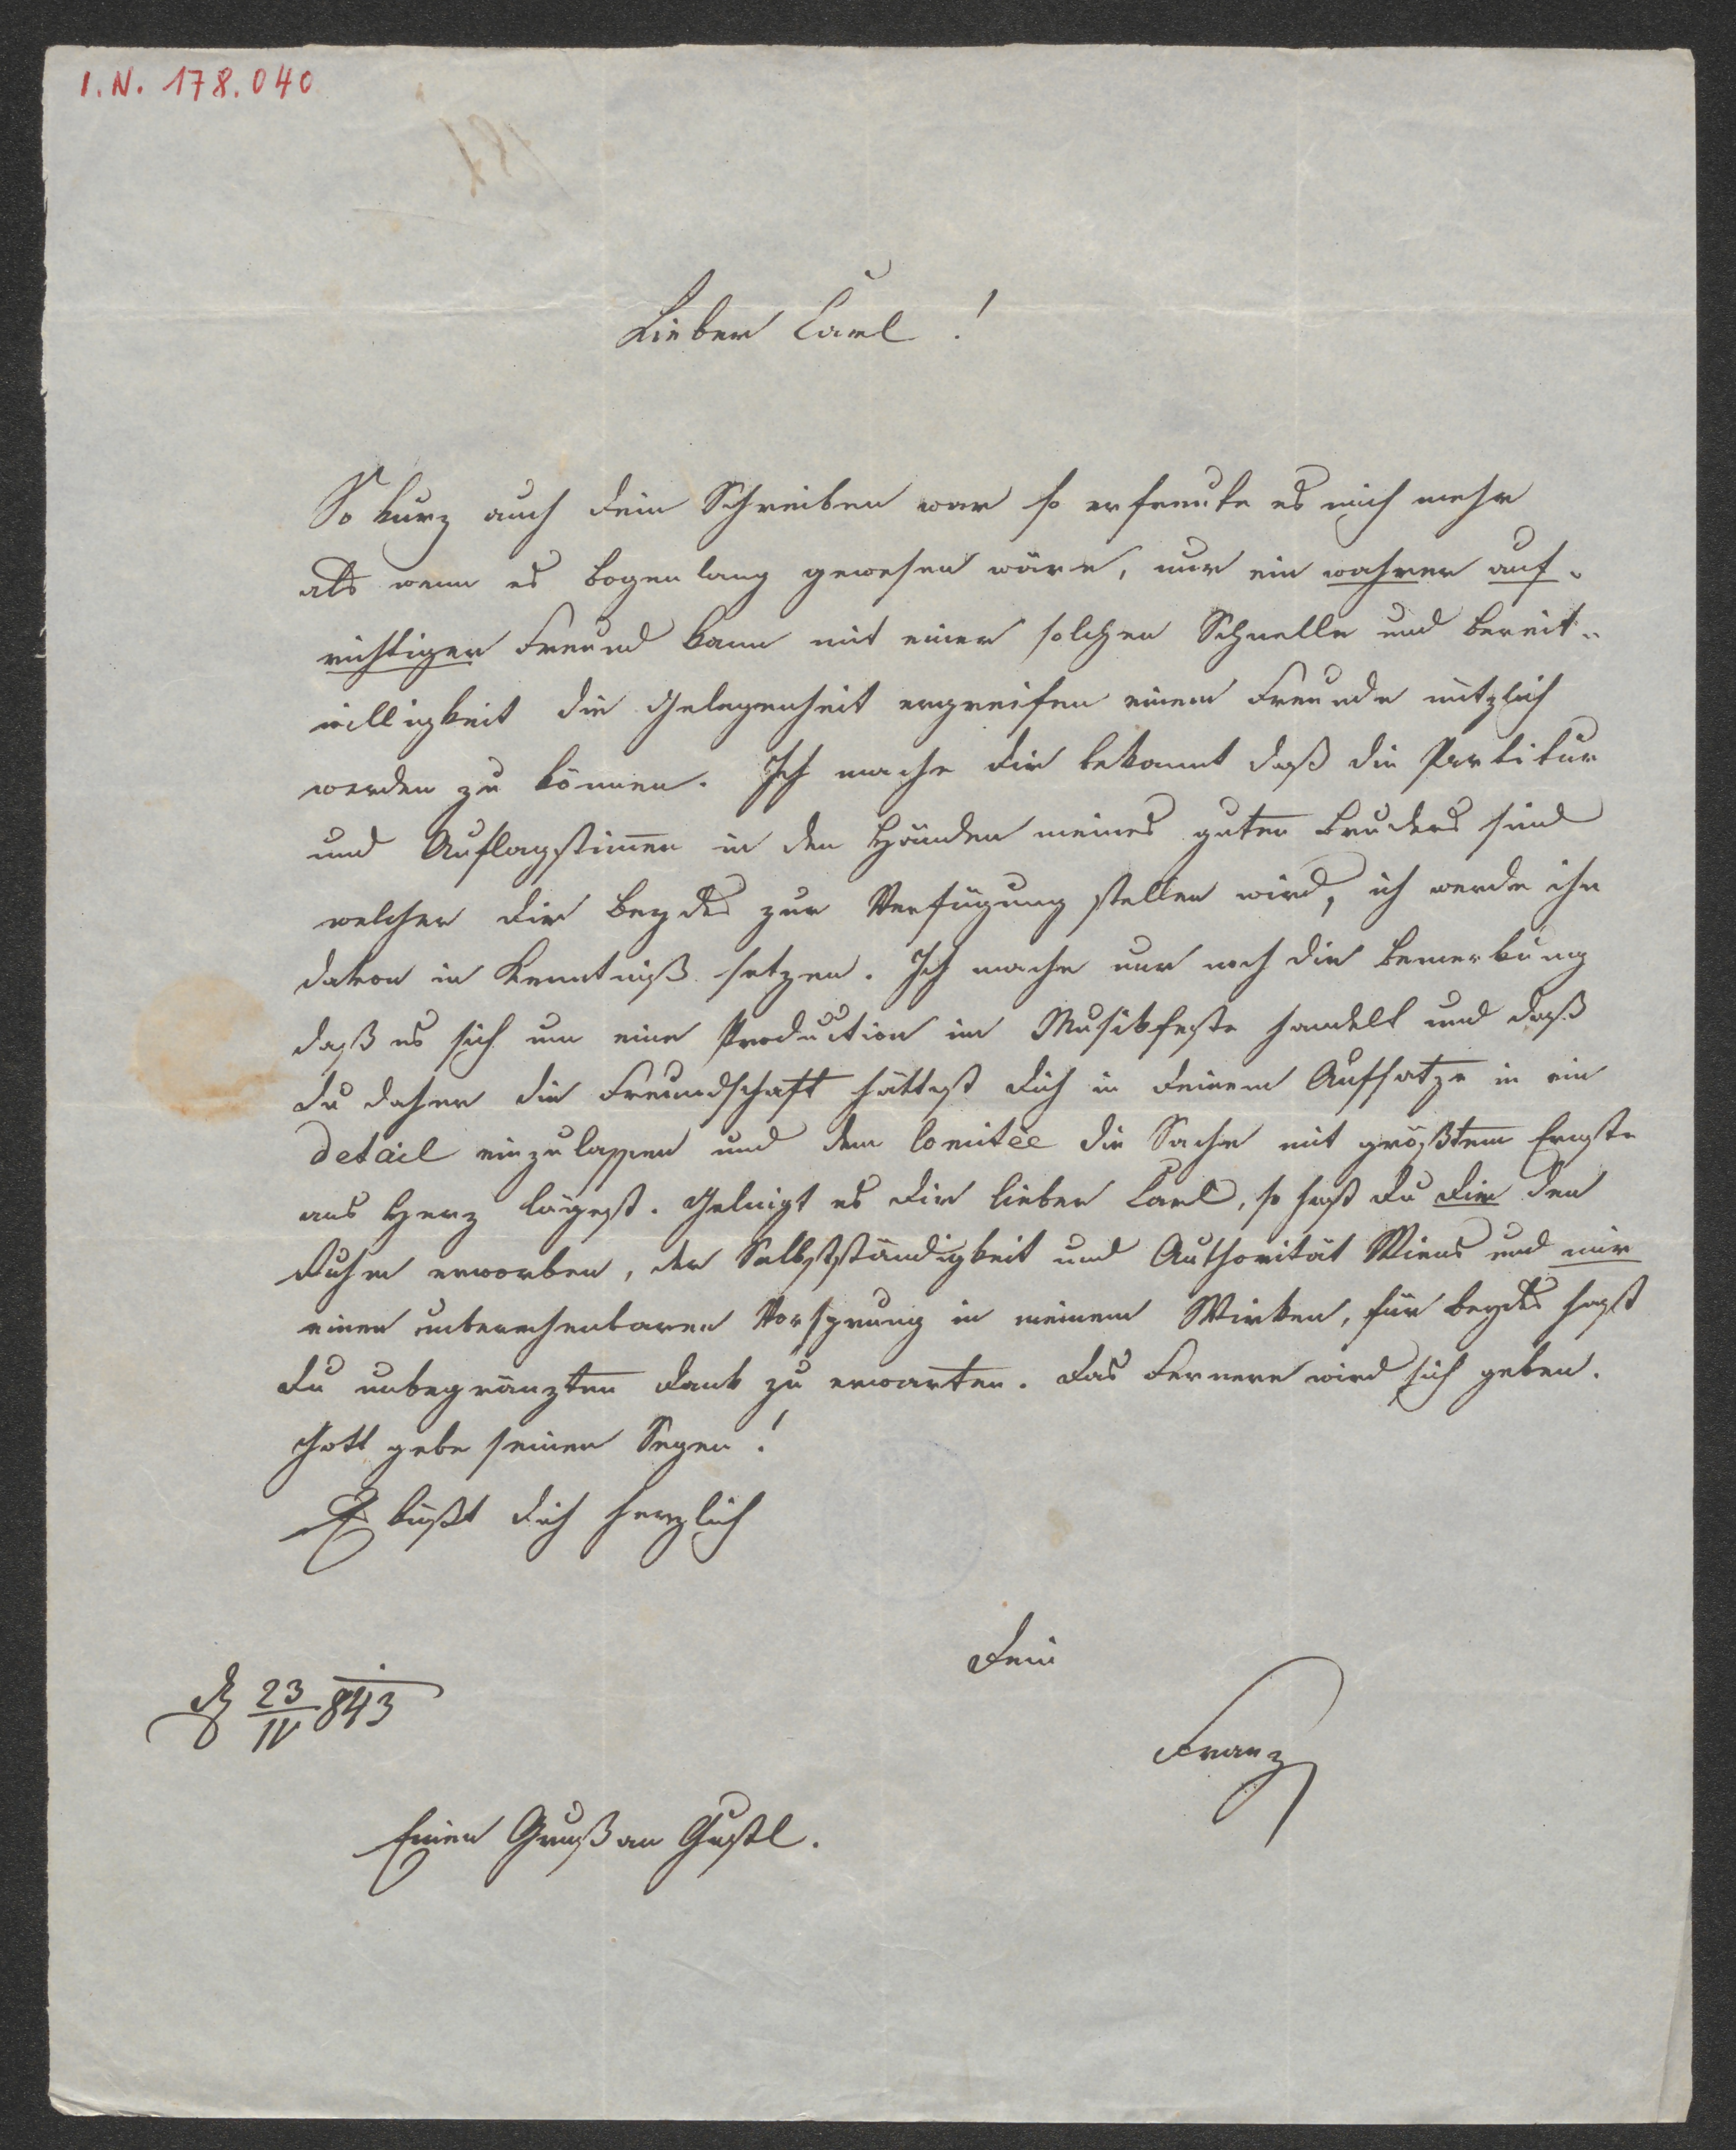 I.N. 178.040
Lieber Carl!
So kurz auch dein Schreiben war so erfreute es mich mehr
als wenn es bogenlang gewesen wäre, nur ein wahrer auf-
richtiger Freund kann mit einer solchen Schnelle und Bereit-
willigkeit die Gelegenheit ergreifen einem Freunde nützlich
werden zu können. Ich mache dir bekannt daß die Partitur
und Auflagstimen in den Händen meines guten Bruders sind
welcher dir beydes zur Verfügung stellen wird, ich werde ihn
davon in Kenntniß setzen. Ich mache nur noch die Bemerkung
daß es sich um eine Production im Musikfeste handelt und daß
du daher die Freundschaft hättest dich in deinem Aufsatze in ein
detail einzulassen und dem Comitée die Sache mit größtem Ernste
ans Herz legest. Gelingt es dir lieber Carl, so hast du dir den
Ruhm erworben, der Selbstständigkeit und Authorität Wiens und mir
einen unberechenbaren Vorsprung in meinem Wirken, für beydes hast
du unbegränzten Dank zu erwarten. Das Fernere wird sich geben.
Gott gebe seinen Segen!
Es küßt dich herzlich
Dein
23/IV 843
Franz
Einen Gruß an Gustl.